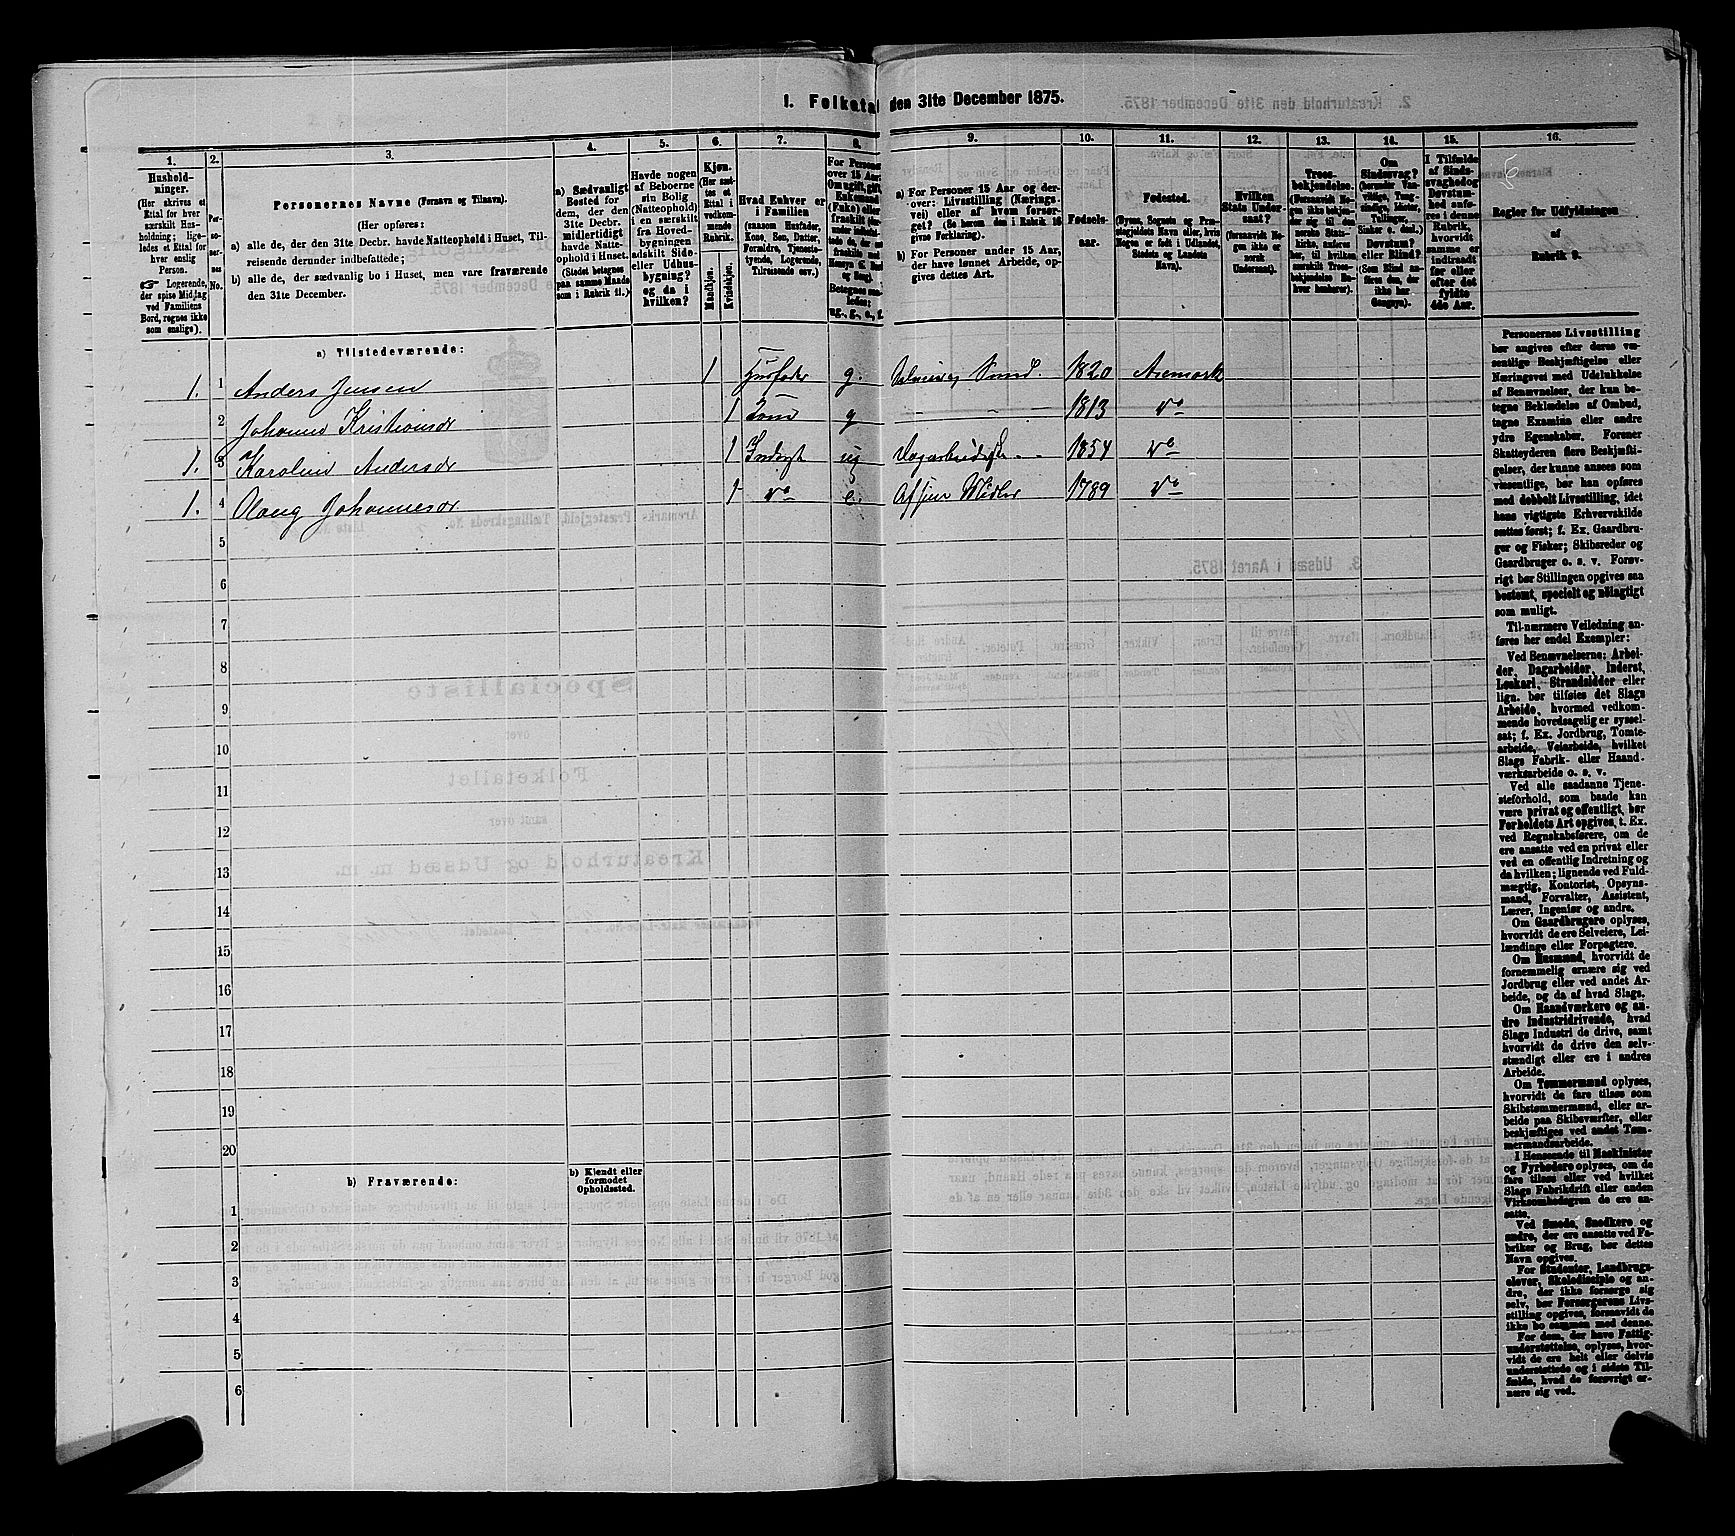 1. Folketal den 31te December 1875.
1. 2. 3. 4. 5. 6. 7. 8. 9. 10. 11. 12. 13. 14. 15. 16.
Hushold-
ninger.
(Her skrives et
Ettal for hver
særskilt Hus-
holdning; lige-
ledes et Ettal for
hver enslig
Person.
☞ Logerende,
der spise Middag
ved Familiens
Bord, regnes ikke
som enslige).
Per-
soner-
nes
No.
Personernes Navne (Fornavn og Tilnavn).
(Her opføres:
a) alle de, der den 31te Decbr. havde Natteophold i Huset, Til-
reisende derunder indbefattede;
b) alle de, der sædvanlig bo i Huset, men vare fraværende
den 31te December.
a) Sædvanligt
Bosted for
dem, der den
31te Decbr.
midlertidigt
havde Natte-
ophold i Huset.
(Stedet betegnes
paa samme Maade
som i Rubrik 11.)
Havde nogen
af Beboerne
sin Bolig
(Natteophold)
i en særskilt
fra Hoved-
bygningen
adskilt Side-
eller Udhus-
bygning?
og da i
hvilken?
Kjøn.
(Her sæt-
tes et
Ettal i
vedkom-
mende
Rubrik.
Mandkjøn.
Kvindekjøn.
Hvad Enhver er
i Familien
(saasom Husfader,
Kone, Søn, Datter,
Forældre, Tjeneste-
tyende, Logerende,
Tilreisende osv.)
For Personer
over 15 Aar:
Om ugift, gift,
Enkemand
(Enke) eller
fraskilt
Betegnes saa-
ledes:
ug., g., e., f.
a) For Personer 15 Aar og der-
over: Livsstilling (Nærings-
vei) eller af hvem forsør-
get? (Se herom den i Rubrik 16
givne Forklaring).
b) For Personer under 15 Aar,
der have lønnet Arbeide, op-
gives dettes Art.
Fødsels-
aar.
Fødested.
(Byens, Sognets og Præ-
stegjeldets Navn eller, hvis
Nogen er født i Udlandet,
Stedets og Landets
Navn).
Hvilken
Stats Under-
saat?
(forsaavidt No-
gen ikke er
norsk
Undersaat).
Troes-
bekjendelse.
(Forsaavidt No-
gen ikke bekjen-
der sig til den
norske Stats-
kirke, anføres
her, til hvilken
særskilt Troes-
bekjendelse En-
hver henhører).
Om
Sindssvag?
(herunder Van-
vittige, Tung-
sindige, Idioter,
Tullinger,
Sinker o. desl.)
Døvstum?
eller Blind?
(Som Blind an-
føres den, der
ikke har
Gangsyn).
I Tilfælde
af Sinds-
svaghed og
Døvstum-
hed anfø-
res i denne
Rubrik,
hvorvidt
samme er
indtraadt
før eller
efter det
fyldte
4de Aar.
Regler for Udfyldningen
af
Rubrik 9.
a) Tilstedeværende:
1. 1 Anders Jensen 1 Husfader g. Selveier 1820 Aremark
2 Johanne Kristiansdr 1 Kone g — — — 1813 do
1. 3 Karoline Andersdr 1 ug 1854 do
1. 4 Johannesdr 1 do e. Af sine Midler 1789 do
5
6
7
8
9
10
11
12
13
14
15
16
17
18
19
20
b) Fraværende:
b) Kjendt eller
formodet
Opholdssted.
1
2
3
4
5
6
Personernes Livsstilling
bør angives efter deres væ-
sentlige Beskjæftigelse eller
Næringsvei med Udelukkelse
af Benævnelser, der kun be-
tegne Beklædelse af Ombud,
tagne Examina eller andre
ydre Egenskaber. Forener
Skatteyderen flere Beskjæfti-
gelser, der kunne ansees som
væsentlige, bør han opføres
med dobbelt Livsstilling, idet
hans vigtigste Erhvervskilde
sættes først; f. Ex. Gaardbru-
ger og Fisker; Skibsreder og
Gaardbruger o. s. v. Forøv-
rigt bør Stillingen opgives saa
bestemt, specielt og nøiagtigt
som muligt.
Til nærmere Veiledning an-
føres her endel Exempler:
Ved Benævnelserne: Arbei-
der, Dagarbeider, Inderst,
Løskarl, Strandsidder eller
lign. bør tilføies det Slags
Arbeide, hvormed vedkom-
mende hovedsagelig er syssel-
sat; f. Ex. Jordbrug, Tomte-
arbeide, Veiarbeide, hvilket
Slags Fabrik- eller Haand-
værksarbeide o. s. v.
Ved alle saadanne Tjene-
steforhold, som baade kan
være privat og offentligt, bør
Forholdets Art opgives, t. Ex.
ved Regnskabsførere, om de
ere ansatte ved en privat eller
ved en offentlig Indretning og
da hvilken; lignende ved Fuld-
mægtig, Kontorist, Opsyns-
mand, Forvalter, Assistent,
Lærer, Ingeniør og andre.
Om Gaardbrugere oplyses,
hvorvidt de ere Selveiere, Lei-
lændinge eller Forpagtere.
Om Husmænd, hvorvidt de
fornemmelig ernære sig ved
Jordbrug eller ved andet Ar-
beide, og da af hvad Slags.
Om Haandværkere og an-
dre Industridrivende, hvad
Slags Industri de drive, samt
hvorvidt de drive den selv-
stændigt eller ere i andres
Arbeide.
Om Tømmermænd oplyses,
hvorvidt de fare tilsøs som
Skibstømmermænd, eller ar-
beide paa Skibsværfter, eller
beskjæftiges ved andet Tøm-
mermandsarbeide.
I Henseende til Maskinister
og Fyrbødere oplyses, om de
fare tilsøs eller ved hvilket
Slags Fabrikdrift eller anden
Virksomhedsgren de ere an-
satte.
Ved Smede, Snedkere og
andre, der ere ansatte ved Fa-
briker og Brug, bør dettes
Navn opgives.
For Studenter, Landbrugs-
elever, Skoledisciple og an-
dre, der ikke forsørge sig
selv, bør Forsørgerens Livs-
stilling opgives, forsaavidt de
ikke bo sammen med denne.
For dem, der have Fattig-
understøttelse, oplyses, hvor-
vidt de ere helt eller delvis
understøttede og i sidste Til-
fælde, hvad de forøvrigt er-
nære sig ved.